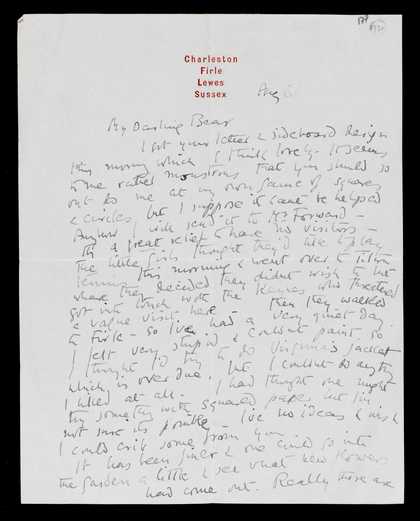 Charleston
Firle
Lewes
Sussex
Aug 6
My Darling Bear
I got your letter & sideboard design
this morning which I think lovely. It seems
to me rather monstrous that you should so
out do me at my own game of squares
& circles, but I suppose it cant be helped
Anyhow I will send it to Mr Forward –
It's a great relief to have no visitors –
The little girls thought they'd like to play
tennis this morning & went over to Tilton
where they decided they didnt wish to but
got out with the Keynes who threatened
a vague visit here – then they walked
to Firle – so I've had a very quiet day.
I felt very stupid & couldnt paint, so
I thought I'd try to do Virginia's jacket
which is over due. but I couldnt do anything
I liked at all – I had thought one might
try something with squared paper but I'm
not sure its possible – I've no ideas & wish
I could crib some from you
It has been finer & one could go into
the garden a little & see what new flowers
had come out. Really there are